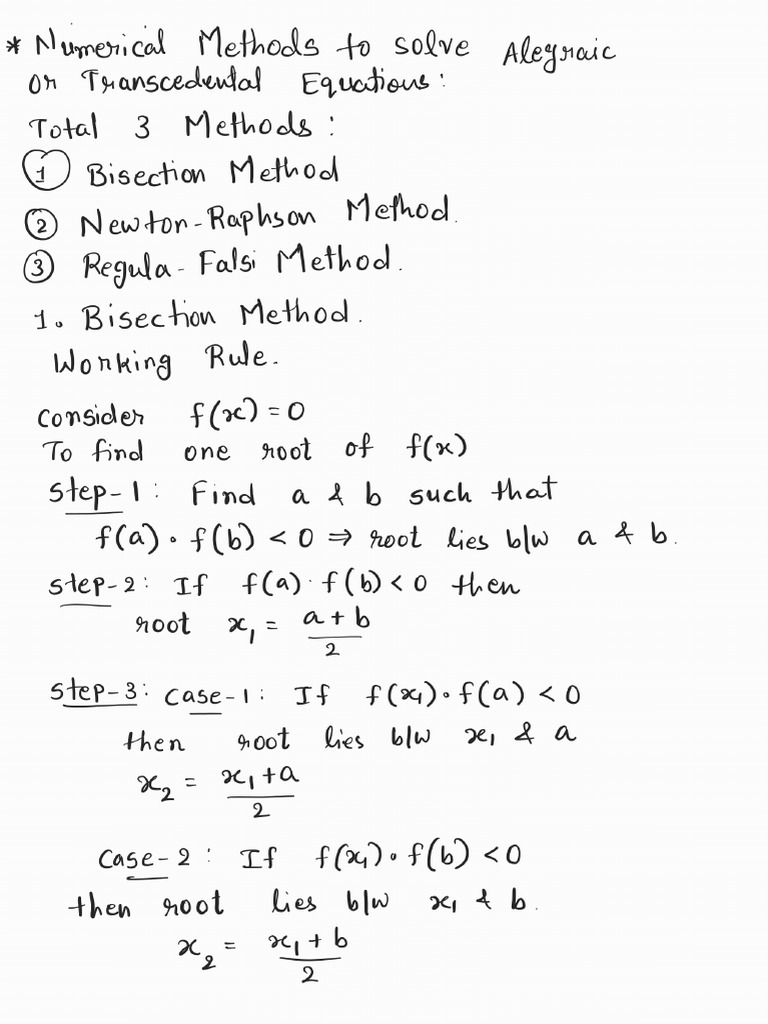 * Numerical Methods to solve Alegraic
or Transcedental Equations:
Total 3 Methods:
① Bisection Method
② Newton-Raphson Method.
③ Regula-Falsi Method.
1. Bisection Method.
Working Rule.
Consider f(x) = 0
To find one root of f(x)
Step-1: Find a & b such that
f(a) · f(b) < 0 ⇒ root lies b/w a & b.
Step-2: If f(a) · f(b) < 0 then
root x₁ = (a + b)/2
Step-3: Case-1: If f(x₁) · f(a) < 0
then root lies b/w x₁ & a
x₂ = (x₁ + a)/2
Case-2: If f(x₁) · f(b) < 0
then root lies b/w x₁ & b.
x₂ = (x₁ + b)/2